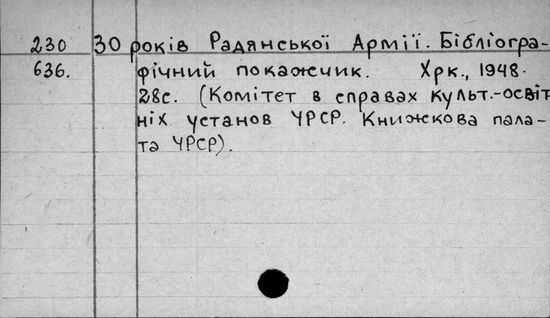 230 30 років Радянської Армії. Бібліогра-
636. фічний покажчик. Хрк., 1948.
28с. (Комітет в справах культ.-освіт
ніх установ УРСР. Книжкова пала-
та УРСР).